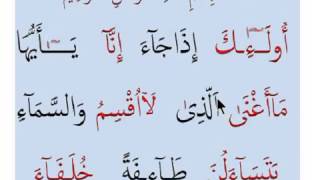 أُولَـٰٓئِكَ إِذَا جَآءَ إِنَّآ يَـٰٓأَيُّهَا
مَآ أَغْنَىٰ ٱلَّذِىٓ لَآ أُقْسِمُ وَالسَّمَآءِ
يَتَسَآءَلُونَ طَآئِفَةٌ خُلَفَآءَ